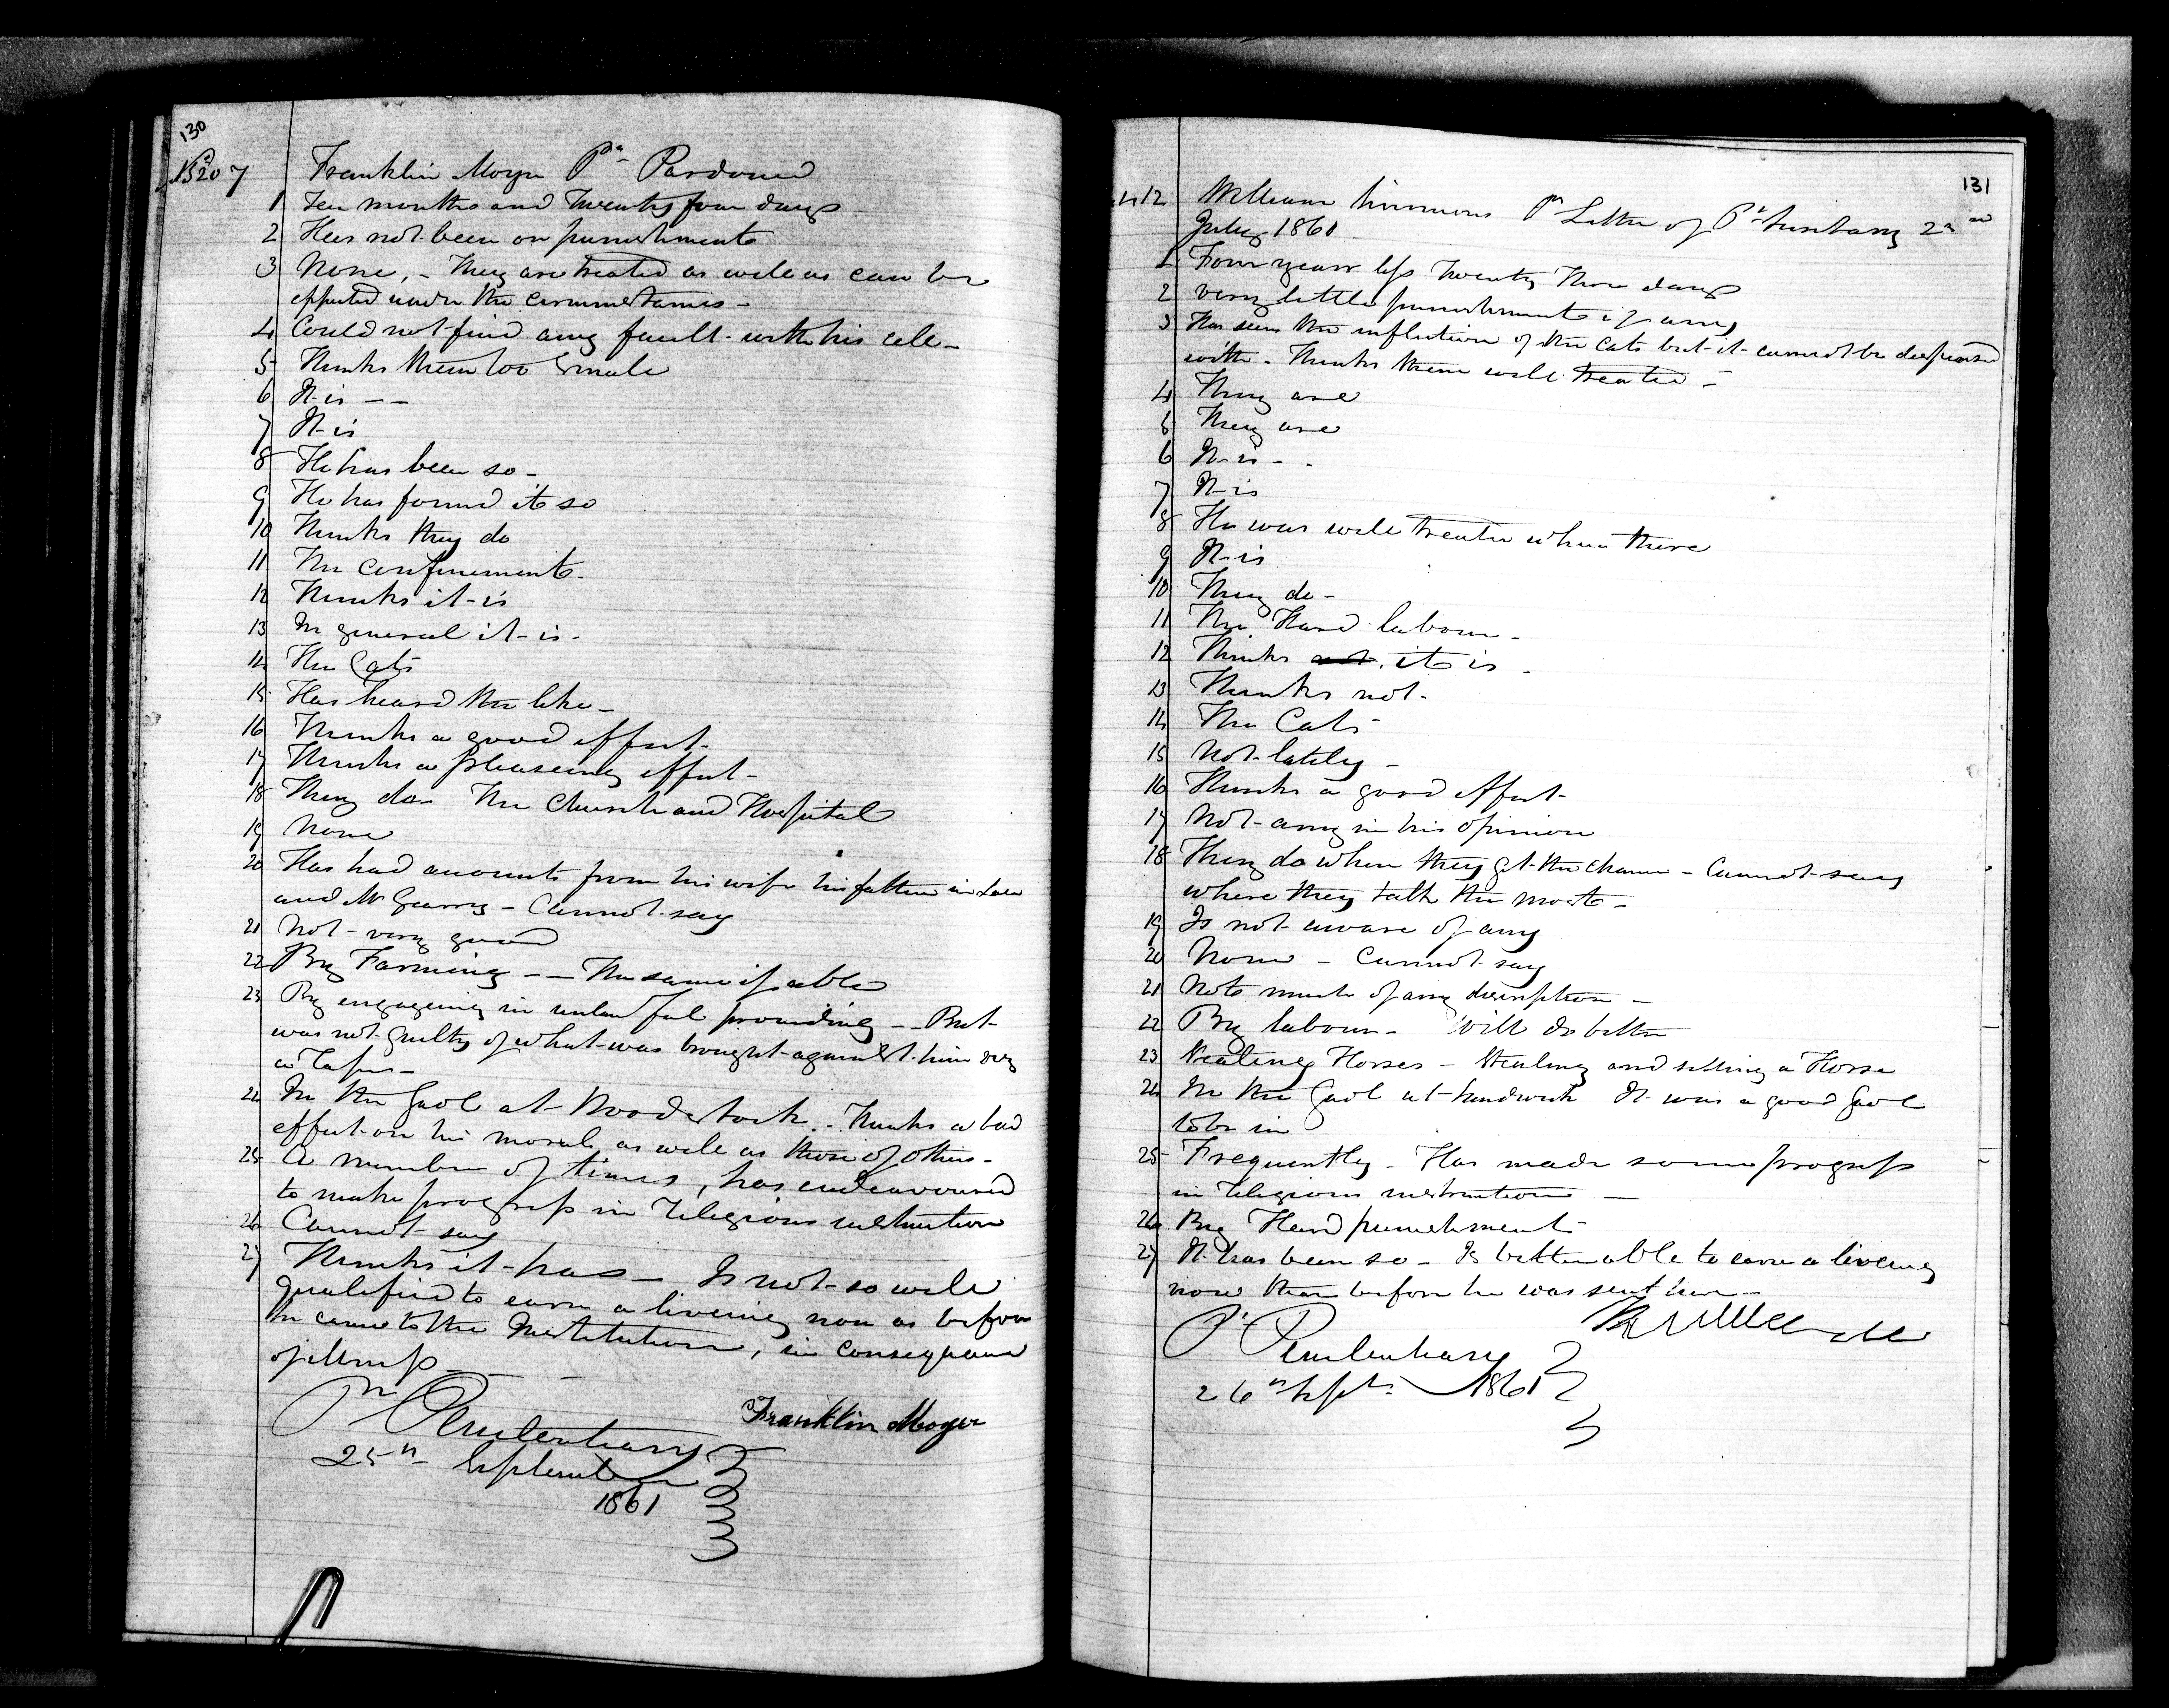 130
No 207 Franklin Moyer Pr Pardoned
1 Ten months and Twenty four days
2 Has not been on punishments
3 None, - They are treated as well as can be
effected under the circumstances -
4 Could not find any fault with his cell -
5 Thinks them too Small
6 It is - -
7 It is
8 He has been so -
9 He has found it so
10 Thinks they do
11 The confinement -
12 Thinks it is
13 In general it is -
14 The Cats
15 Has heard the like -
16 Thinks a good effect -
17 Thinks a pleaseing effect -
18 They do - The Church and Hospital
19 None
20 Has had accounts from his wife his father in Law
and Mr Gearry - Cannot say
21 Not very good
22 By Farming - - The same if able
23 By engageing in unlawful proceeding - - But
was not guilty of what was brought against him
24 In the Gaol at Woodstock - Thinks a bad
effect on his morals as well as those of others -
25 A number of times, has endeavoured
to make progress in religious instruction
26 Cannot say
27 Thinks it has - Is not so well
qualified to earn a liveing now as before
he came to the Institution, in consequence
of illness -
Pr Penitentiary
25th September
1861
Franklin Moyer
131
412 William Simmons Pr Letter of Pr Secretary 22nd
July 1861
1 Four years less Twenty Three days
2 very little punishment if any
3 Has seen the infliction of the Cats but it cannot be dispensed
with - Thinks them well treated -
4 They are
5 They are
6 It is - -
7 It is
8 He was well treated when there
9 It is
10 They do -
11 The Hard labour -
12 Thinks it is -
13 Thinks not -
14 The Cats
15 Not lately -
16 Thinks a good effect -
17 Not any in his opinion
18 They do when they get the chance - Cannot say
where they talk the most -
19 Is not aware of any
20 None - Cannot say
21 Not much of any description -
22 By labour - Will do better
23 Stealing Horses - Stealing and selling a Horse
24 In the Gaol at Sandwich It was a good Gaol
to be in
25 Frequently - Has made some progress
in religious instruction -
26 By Hard punishment -
27 It has been so - Is better able to earn a liveing
now than before he was sent here -
Pr Penitentiary
26th Septr 1861